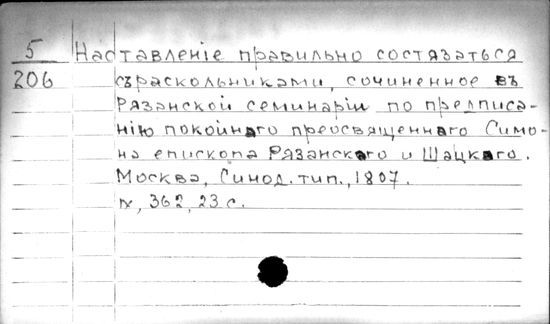 5 Наставленіе правильно состязаться
206 съ раскольниками, сочиненное въ
Рязанской семинаріи по предписа-
нію покойнаго преосвященнаго Симо-
на епископа Рязанскаго и Шацкаго.
Москва, Синод. тип., 1807.
IX, 362, 23 с.